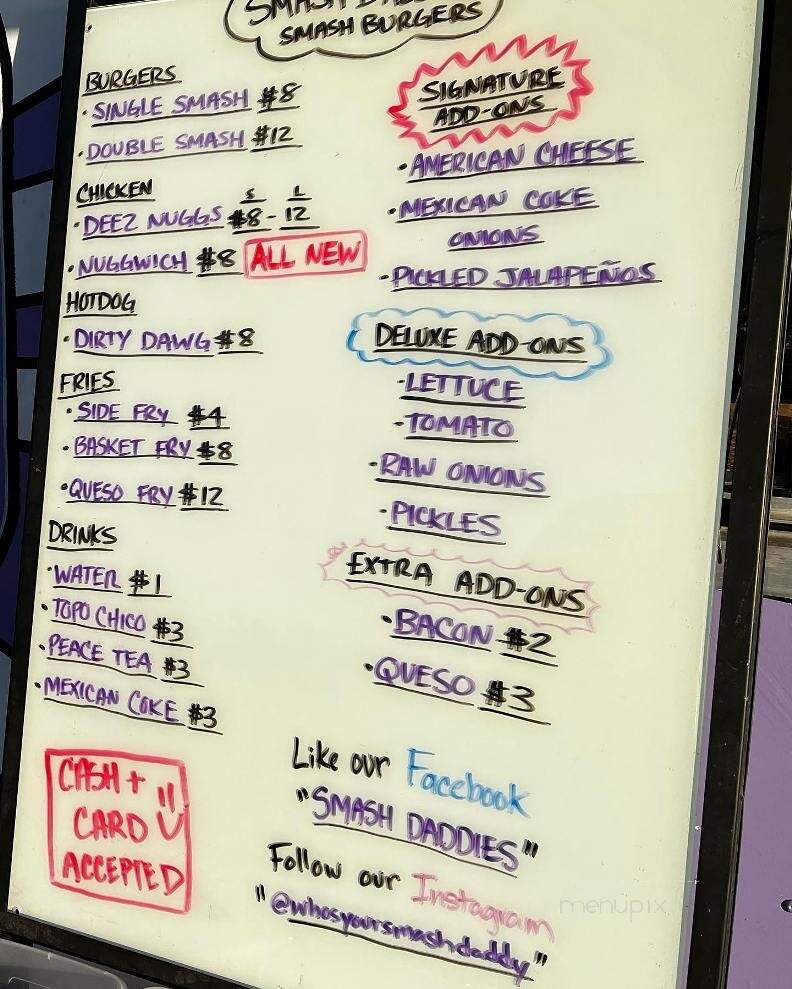 SMASH
SMASH BURGERS
BURGERS
• SINGLE SMASH $8
• DOUBLE SMASH $12
CHICKEN
S L
• DEEZ NUGGS $8 - 12
• NUGGWICH $8 ALL NEW
HOTDOG
• DIRTY DAWG $8
FRIES
• SIDE FRY $4
• BASKET FRY $8
• QUESO FRY $12
DRINKS
• WATER $1
• TOPO CHICO $3
• PEACE TEA $3
• MEXICAN COKE $3
CASH +
CARD
ACCEPTED
SIGNATURE
ADD-ONS
• AMERICAN CHEESE
• MEXICAN COKE
ONIONS
• PICKLED JALAPEÑOS
DELUXE ADD-ONS
• LETTUCE
• TOMATO
• RAW ONIONS
• PICKLES
EXTRA ADD-ONS
• BACON $2
• QUESO $3
Like our Facebook
"SMASH DADDIES"
Follow our Instagram
"@whosyoursmashdaddy"
menupix